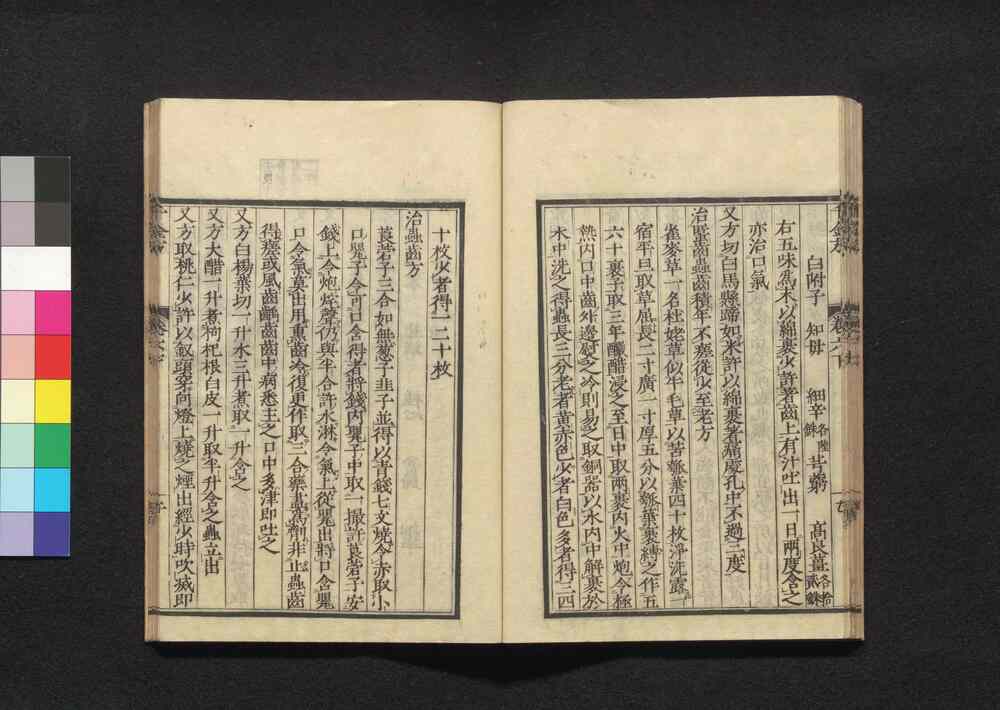 白附子 知母 細辛各陸銖 芎藭 高良薑各拾貳銖
右五味爲末以綿裹少許著齒上有汁吐出一日兩度含之
亦治口氣
又方切白馬懸蹄如米許以綿裹著痛處孔中不過三度
治䘌蟲齒積年不瘥從少至老方
雀麥草一名杜姥草似牛毛草以苦瓠葉四十枚淨洗露一
宿平旦取草屈長二寸廣一寸厚五分以瓠葉裹縛之作五
六十裹子取三年釅醋浸之至日中取兩裹內火中炮令極
熱內口中齒外邊熨之冷則易之取銅器以水內中解裹於
水中洗之得蟲長三分老者黃赤色少者白色多者得三四
十枚少者得一二十枚
治蟲齒方
莨菪子三合如無葱子韭子並得以青錢七文燒令赤取小
口甖子令可口含得者將錢內甖子中取一撮許莨菪子安
錢上令炮烢聲仍與半合許水淋令氣上從甖出將口含甖
口令氣莫出用熏齒冷復更作取三合藥盡爲劑非止蟲齒
得瘥或風齒齲齒齒中病悉主之口中多津即吐之
又方白楊葉切一升水三升煮取一升含之
又方大醋一升煮枸杞根白皮一升取半升含之蟲立出
又方取桃仁少許以釵頭穿向燈上燒之煙出經少時吹滅即